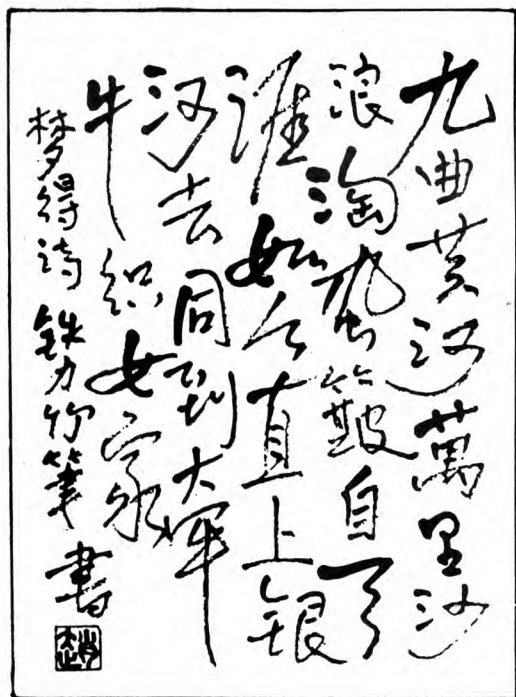 九曲黄河萬里沙
浪淘風簸自天
涯如今直上銀
河去同到牽
牛织女家
梦得诗 铁力竹筆書